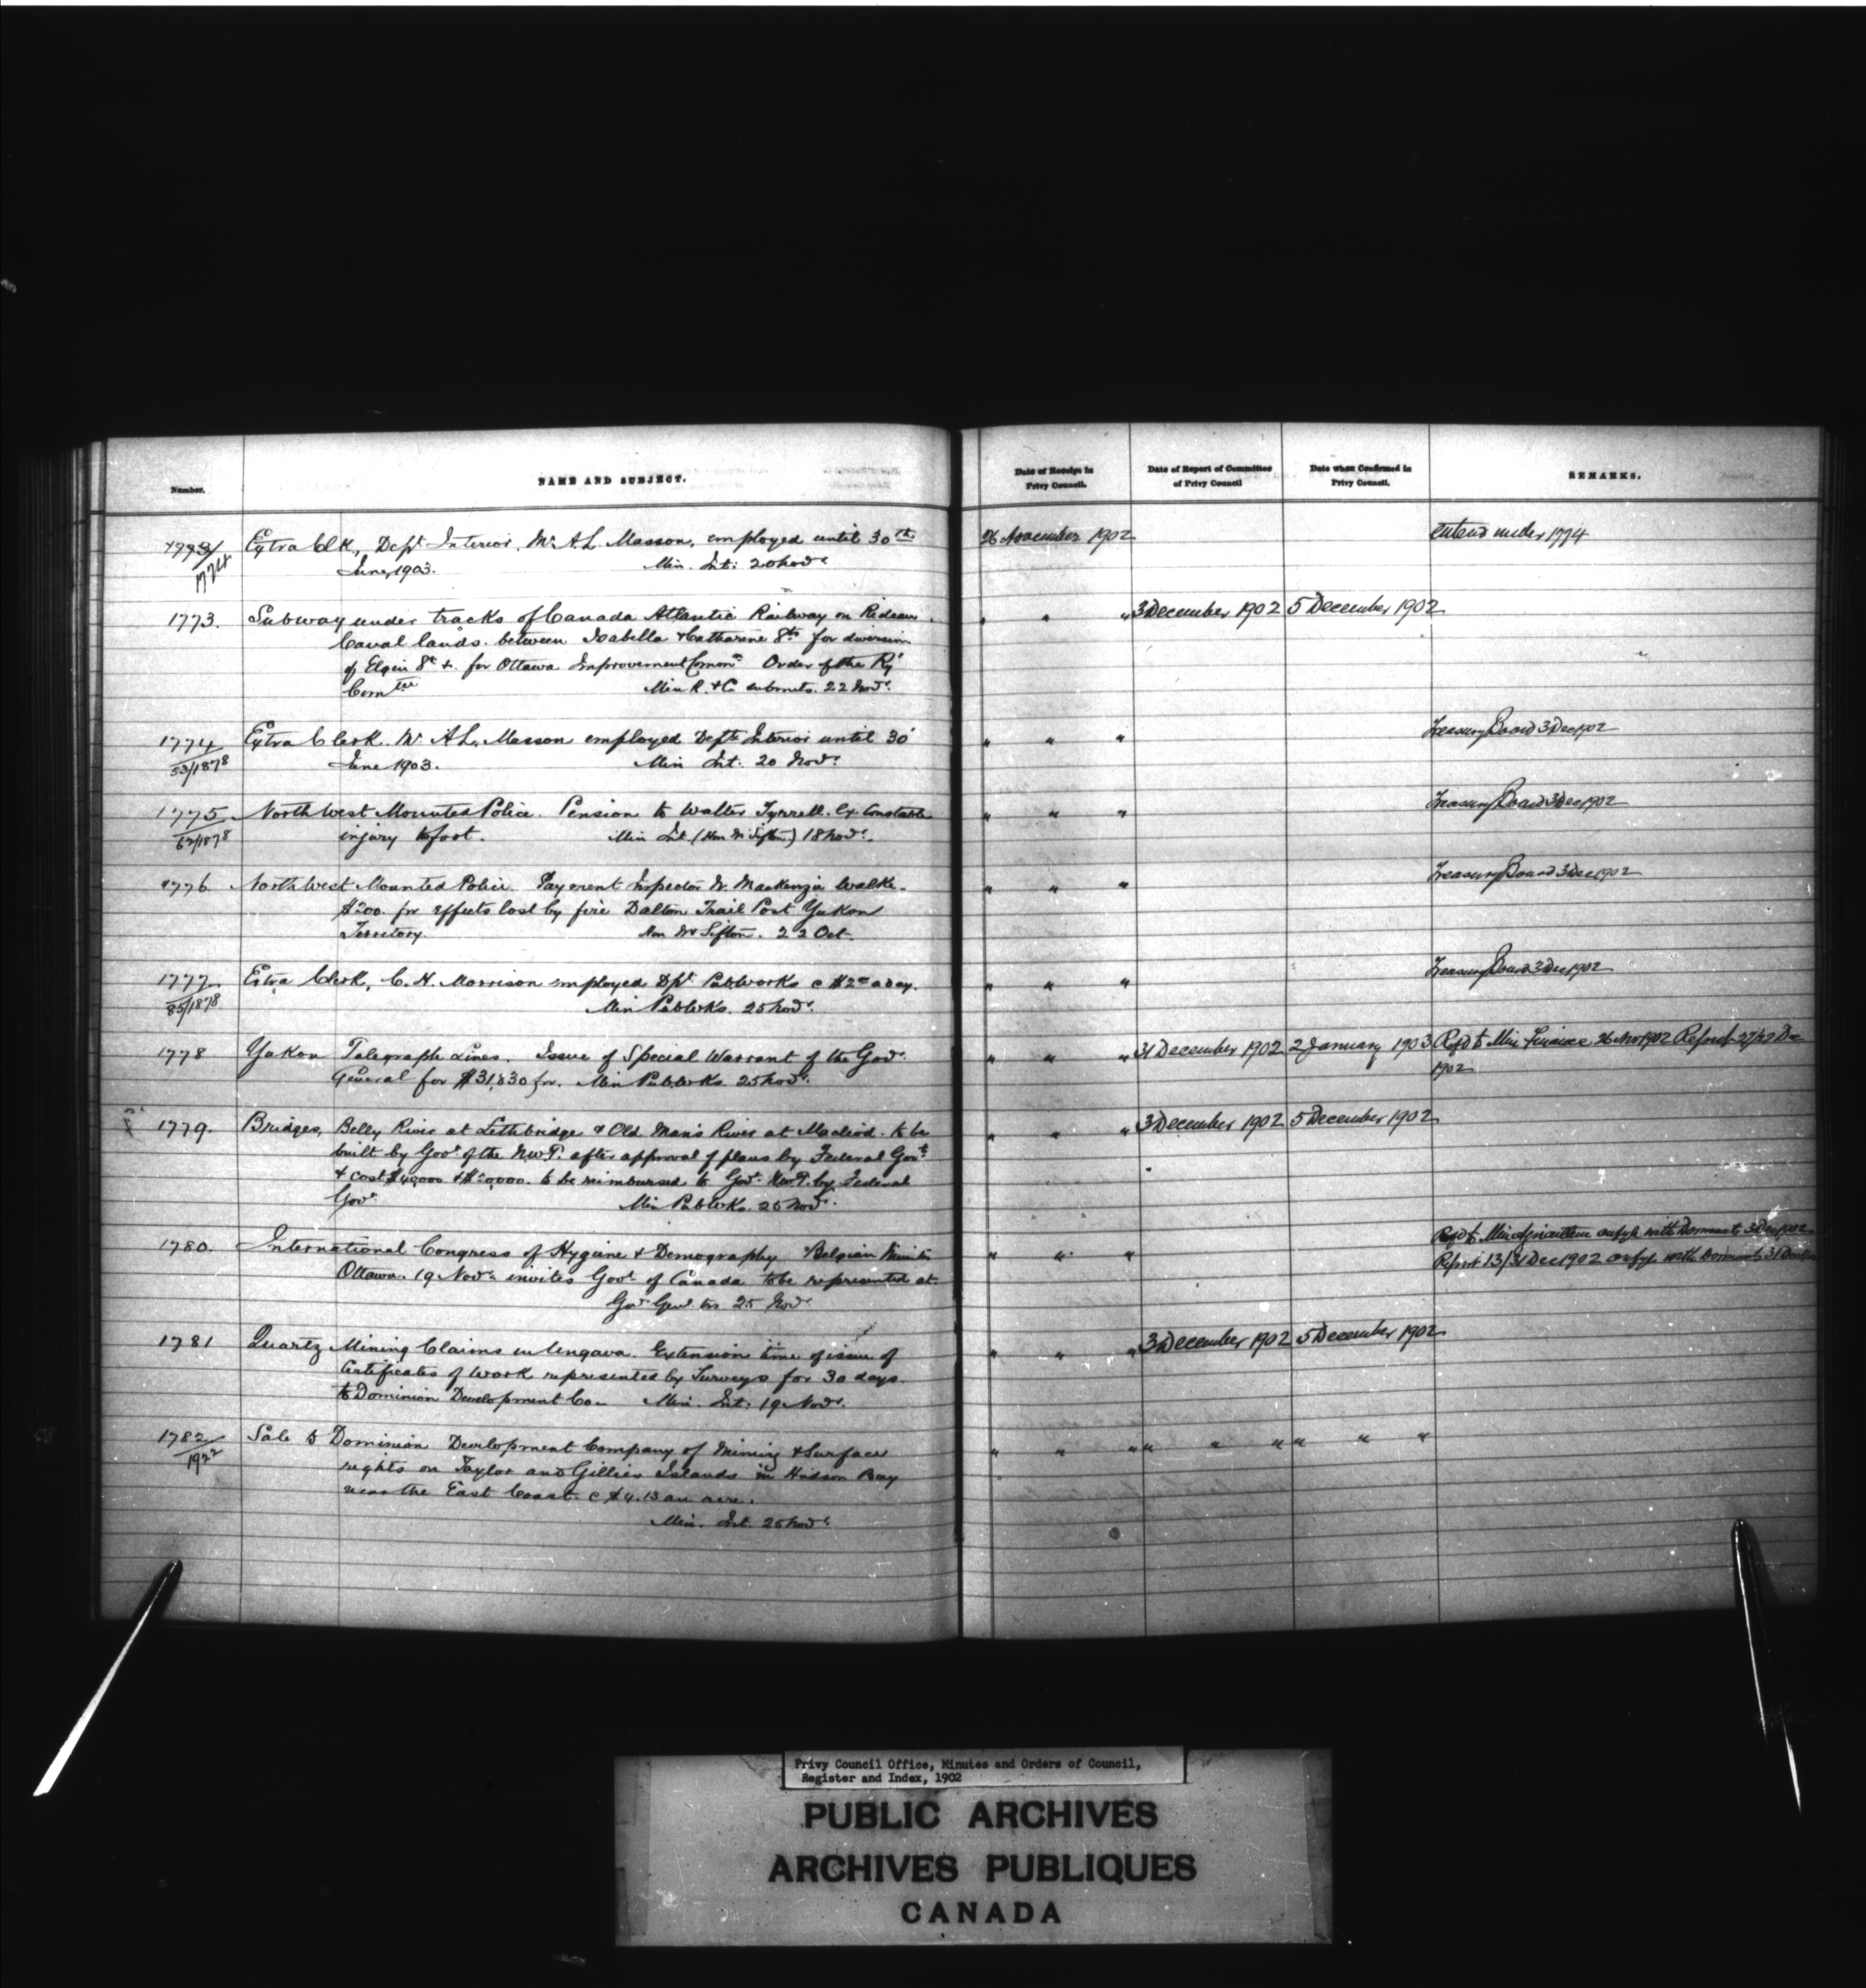 Number.
NAME AND SUBJECT.
Date of Receipt in
Privy Council.
Date of Report of Committee
of Privy Council
Date when Confirmed in
Privy Council.
REMARKS.
1773/
1774
Extra Clk, Dept Interior, Mr A. L. Masson, employed until 30th
June, 1903. Min. Int: 20 Novr.
26 November 1902
Entered under 1774
1773. Subway under tracks of Canada Atlantic Railway on Rideau
Canal lands. between Isabella & Catharine Sts for diversion
of Elgin St &. for Ottawa Improvement Comn. Order of the Ry
Comtee Min R. & C. submits. 22 Novr.
" " " 3 December 1902 5 December 1902
1774
53/1878
Extra Clerk. Mr A L. Masson employed Dept Interior until 30'
June 1903. Min Int. 20 Novr.
" " "
Treasury Board 3 Dec 1902
1775
62/1878
North West Mounted Police. Pension to Walter Tyrrell. Ex Constable
injury to foot. Min Int. (Hon Mr Sifton) 18 Novr.
" " "
Treasury Board 3 Dec 1902
1776. North West Mounted Police. Payment Inspector W. Mackenzie Walke.
$200. for effects lost by fire Dalton Trail Post Yukon
Territory. Hon Mr Sifton. 22 Oct.
" " "
Treasury Board 3 Dec 1902
1777
85/1878
Extra Clerk, C. H. Morrison employed Dpt Pub Works @ $2.00 a day.
Min Pub Wks. 25 Novr.
" " "
Treasury Board 3 Dec 1902
1778 Yukon Telegraph Lines. Issue of Special Warrant of the Govr.
General for $31,830 for. Min Pub Wks 25 Novr.
" " " 31 December 1902 2 January 1903 Refd to Min Finance 26 Nov 1902 Report 27/29 Dec
1902
1779. Bridges, Belly River at Lethbridge & Old Man's River at Macleod. to be
built by Govt of the N.W.T. after approval of plans by Federal Govt
& cost $40,000 & $20,000. to be reimbursed to Govt. NWT. by Federal
Govt. Min Pub Wks. 25 Novr.
" " " 3 December 1902 5 December 1902
1780. International Congress of Hygiene & Demography Belgian Ministr
Ottawa. 19 Novr. invites Govt. of Canada to be represented at
Govr Genl trs 25 Novr
" " "
Refd to Min Agriculture with Dormants 3 Dec 1902
Report 13/31 Dec 1902 with Dormants 31 Dec
1781 Quartz Mining Claims in Ungava. Extension time of issue of
Certificates of Work represented by Surveys for 30 days.
to Dominion Development Co. Min. Int: 19 Novr.
" " " 3 December 1902 5 December 1902
1782
1922
Sale to Dominion Development Company of Mining & Surface
rights on Taylor and Gillies Islands in Hudson Bay
near the East Coast. @ $4.13 an acre.
Min. Int. 25 Novr.
" " " " " " " " "
Privy Council Office, Minutes and Orders of Council,
Register and Index, 1902
PUBLIC ARCHIVES
ARCHIVES PUBLIQUES
CANADA